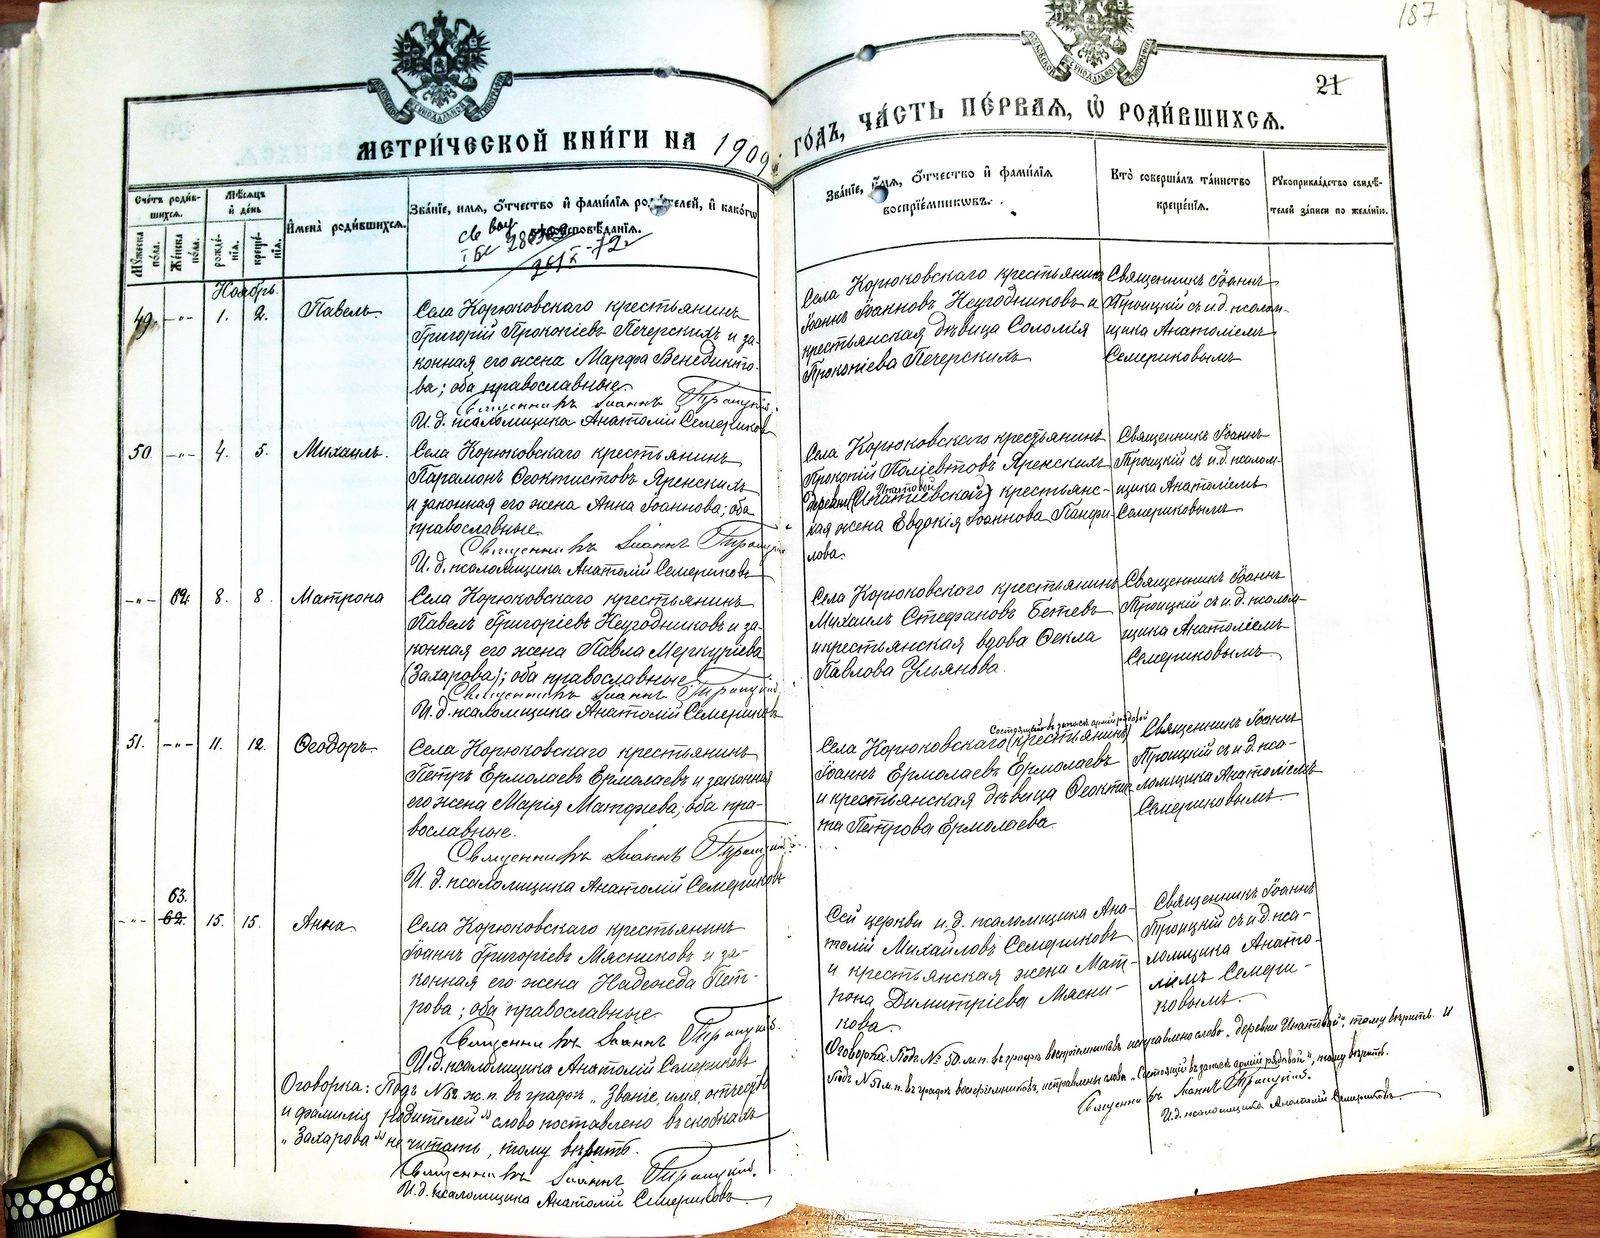 187
21
МЕТРИ́ЧЕСКОЙ КНИ́ГИ НА 1909 ГО́ДЪ, ЧА́СТЬ ПЕ́РВАЯ, Ѡ҆ РОДИ́ВШИХСЯ.
Сче́тъ роди́в-
шихся.
Мꙋ́жеска
по́ла.
Же́нска
по́ла.
Мѣ́сяцъ
и҆ де́нь
рожде́-
нїя.
креще́-
нїя.
И҆мена̀ роди́вшихся.
Зва́нїе, и҆́мя, ѻ҆́тчество и҆ фами́лїя роди́телей, и҆ како́гѡ
вѣроисповѣ́данїя.
26/X-72г
Зва́нїе, и҆́мя, ѻ҆́тчество и҆ фами́лїя
воспрїе́мникѡвъ.
Кто̀ соверша́лъ та́инство
креще́нїя.
Рꙋкоприкла́дство свидѣ́-
телей за́писи по жела́нїю.
Ноябрь.
49. -"- 1. 2. Павелъ.
Села Корюковскаго крестьянинъ
Григорій Прокопіевъ Печерскихъ и за-
конная его жена Марфа Венедикто-
ва; оба православные.
Священникъ Іоаннъ Троицкій.
И.д. псаломщика Анатолій Семериковъ
Села Корюковскаго крестьянинъ
Іоаннъ Іоанновъ Неугодниковъ и
крестьянская дѣвица Соломія
Прокопіева Печерскихъ
Священникъ Іоаннъ
Троицкій съ и.д. псалом-
щика Анатоліемъ
Семериковымъ
50 -"- 4. 5. Михаилъ.
Села Корюковскаго крестьянинъ
Парамонъ Ѳеоктистовъ Яренскихъ
и законная его жена Анна Іоаннова; оба
православные.
Священникъ Іоаннъ Троицкій
И.д. псаломщика Анатолій Семериковъ
Села Корюковскаго крестьянинъ
Прокопій Поліевктовъ Яренскихъ
Игнатовой
деревни (Игнатіевской) крестьянс-
кая жена Евдокія Іоаннова Панфи-
лова.
Священникъ Іоаннъ
Троицкій съ и.д. псалом-
щика Анатоліемъ
Семериковымъ
-"- 62. 8. 8. Матрона
Села Корюковскаго крестьянинъ
Павелъ Григоріевъ Неугодниковъ и за-
конная его жена Павла Меркуріева
(Захарова); оба православные
Священникъ Іоаннъ Троицкій
И.д. псаломщика Анатолій Семериковъ
Села Корюковскаго крестьянинъ
Михаилъ Стефановъ Бетевъ
и крестьянская вдова Ѳекла
Павлова Ульянова.
Священникъ Іоаннъ
Троицкій съ и.д. псалом-
щика Анатоліемъ
Семериковымъ.
51. -"- 11. 12. Ѳеодоръ
Села Корюковскаго крестьянинъ
Петръ Ермолаевъ Ермолаевъ и законная
его жена Марія Матѳіева; оба пра-
вославные.
Священникъ Іоаннъ Троицкій.
И.д. псаломщика Анатолій Семериковъ
Состоящій въ запасѣ арміи рядовой
Села Корюковскаго (крестьянинъ)
Іоаннъ Ермолаевъ Ермолаевъ
и крестьянская дѣвица Ѳеоктис-
та Петрова Ермолаева.
Священникъ Іоаннъ
Троицкій съ и.д. пса-
ломщика Анатоліемъ
Семериковымъ.
63.
-"- 62. 15. 15. Анна
Села Корюковскаго крестьянинъ
Іоаннъ Григоріевъ Мясниковъ и за-
конная его жена Надежда Пет-
рова; оба православные
Священникъ Іоаннъ Троицкій.
И.д. псаломщика Анатолій Семериковъ
Сей церкви и.д. псаломщика Ана-
толій Михайловъ Семериковъ
и крестьянская жена Мат-
рона Димитріева Мясни-
кова.
Священникъ Іоаннъ
Троицкій съ и.д. пса-
ломщика Анато-
ліемъ Семери-
ковымъ.
Оговорка: Подъ № 62 ж.п. въ графѣ „Званіе, имя, отчество
и фамилія родителей" слово поставлено въ скобкахъ
„Захарова" не читать, тому вѣрить.
Священникъ Іоаннъ Троицкій.
И.д. псаломщика Анатолій Семериковъ
Оговорка. Подъ № 50 м.п. въ графѣ воспріемниковъ исправлено слово „деревни Игнатовой", тому вѣрить. И
подъ № 51 м.п. въ графѣ воспріемниковъ, исправлены слова „Состоящій въ запасѣ арміи рядовой", тому вѣрить.
Священникъ Іоаннъ Троицкій.
И.д. псаломщика Анатолій Семериковъ